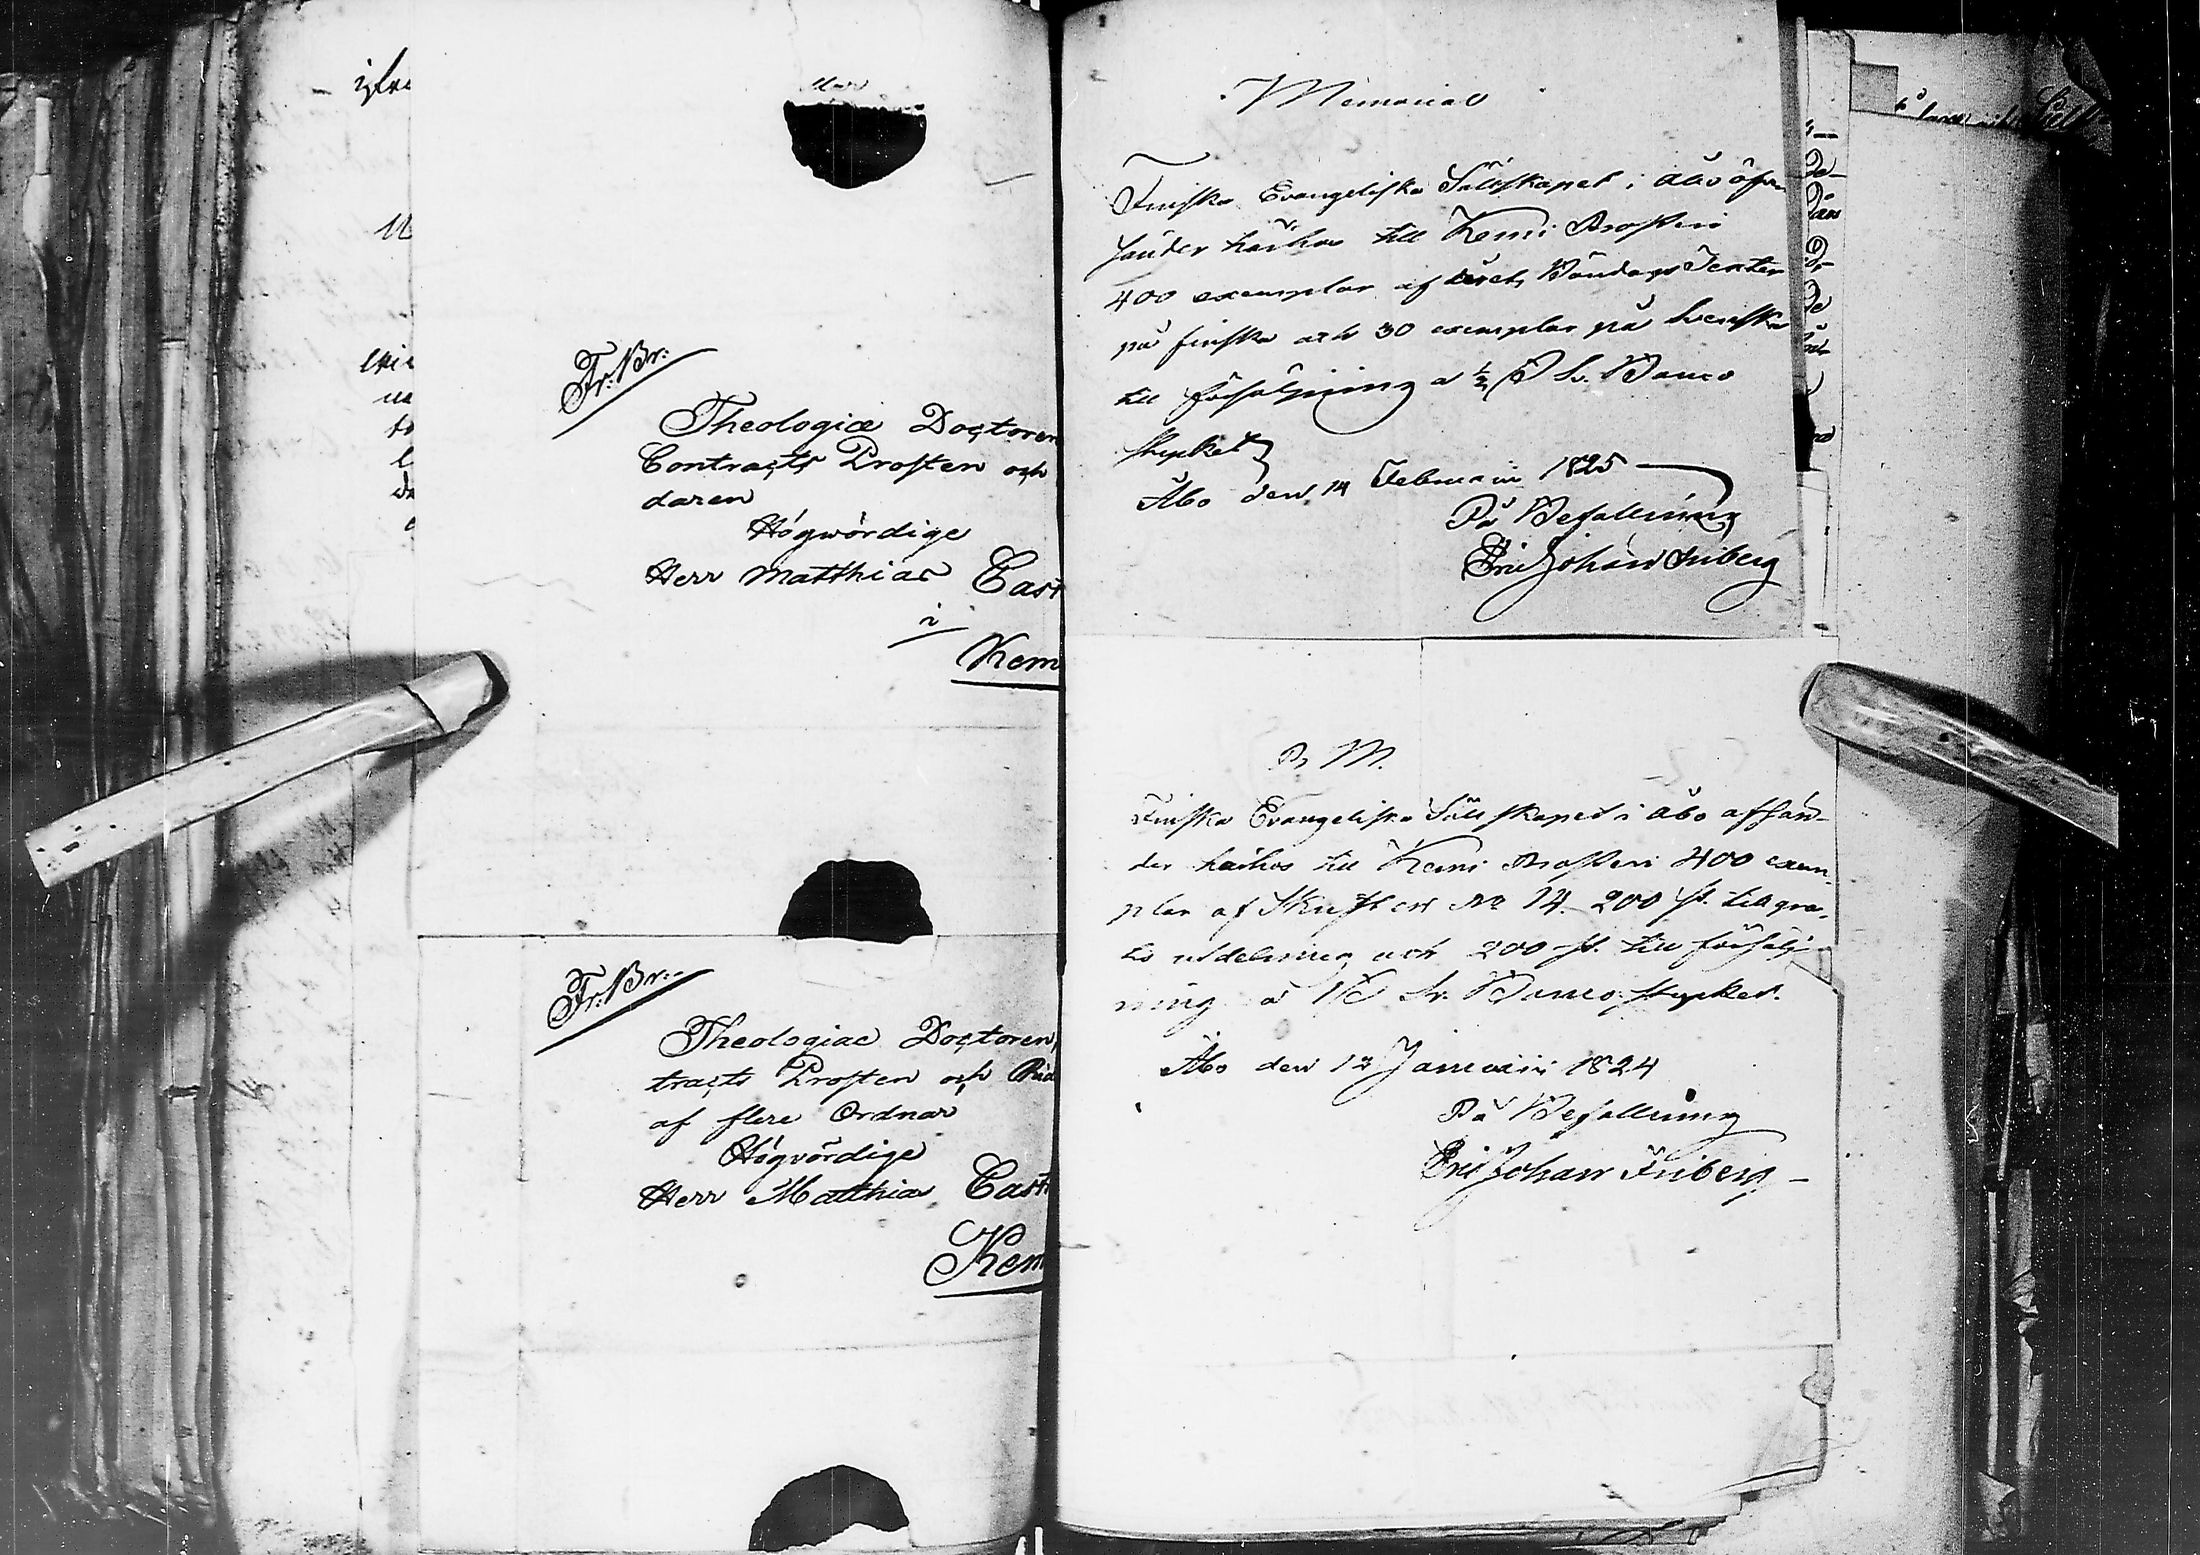 Fr: Br:
Theologiæ Doctoren
Contracts Prosten och
daren
Högwördige
Herr Matthias Cast
i
Kem
Fr: Br:
Theologiae Doctoren,
tracts Prosten och Rid
af flere Ordnar
Högvördige
Herr Matthias Cast
Kem
Memorial
Finska Evangeliska Sällskapet i Åbo öfver
sänder härhos till Kemi Prosteri
400 exemplar af årets Böndags Texter
på finska och 30 exemplar på Svenska
till försäljning a ½ ß Sv. Banco
stycket
Åbo den 14 Februarii 1825
På Befallning
Eric Johan Friberg
P. M.
Finska Evangeliska Sällskapet i Åbo afsän-
der härhos till Kemi Prosteri 400 exem-
plar af Skriften No 14. 200 st. till gra-
tis utdelning och 200 st. till försälj-
ning a 1 ß Sv. Banco stycket.
Åbo den 12 Januarii 1824
På Befallning
Eric Johan Friberg